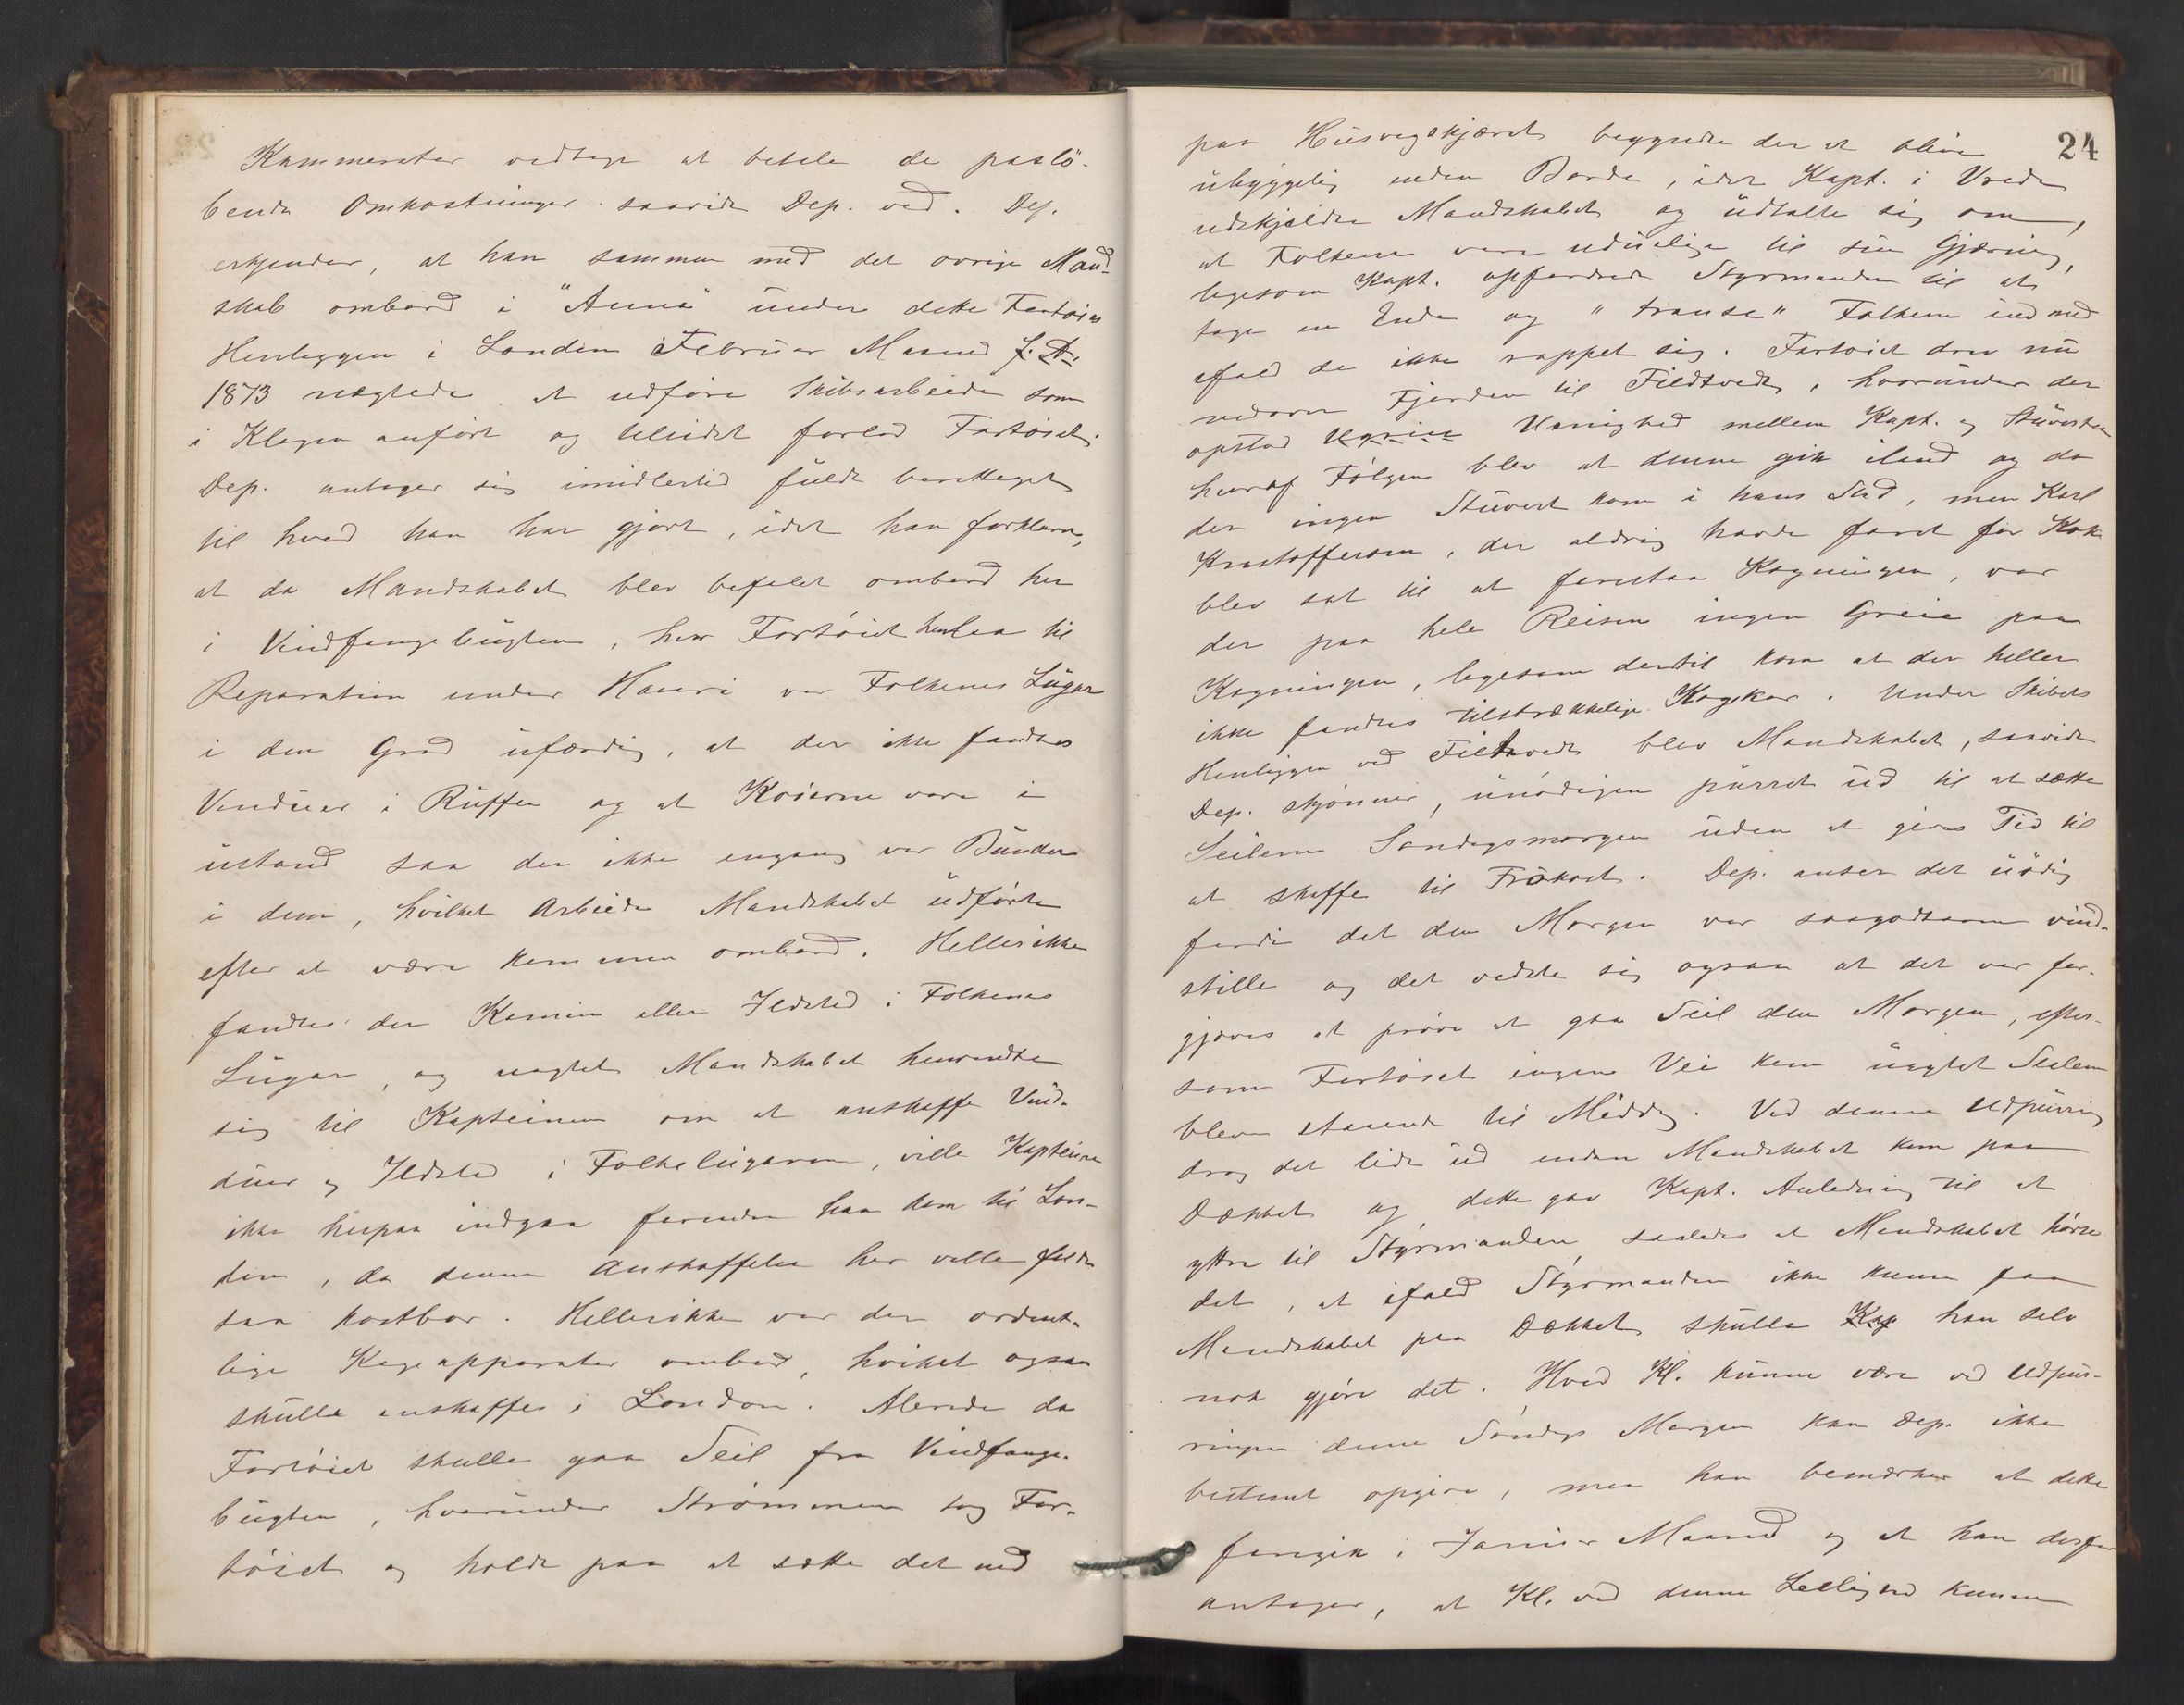 Kammerater vedtage at betale de paalö-
bende Omkostninger saavidt Dep. ved. Dep.
erkjender, at han sammen med det øvrige Mand-
skab ombord i "Anna" under dette Fartøies
Henliggen i London i Februar Maaned
1873 nægtede at udføre Skibsarbeide som
i Klagen anført og tilsidst forlod Fartøiet.
Dep. antager sig imidlertid fuldt berettiget
til hvad han har gjort, idet han forklarer,
at da Mandskabet blev befalet ombord her
i Vindfangebugten, hvor Fartøiet henlaa til
Reparation under Havari var Folkenes Lugar
i den Grad ufærdig, at der ikke fandtes
Vinduer i Ruffen og at Køierne vare i
ustand saa der ikke engang var Bunder
i dem, hvilket Arbeide Mandskabet udførte
efter at være kommen ombord. Hellerikke
fandtes der Kamin eller Ildsted i Folkenes
Lugar, og uagtet Mandskabet henvendte
sig til Kapteinen om at anskaffe Vind-
duer og Ildsted i Folkelugaren, vilde Kapteinen
ikke herpaa indgaa førend han kom til Lon-
don, da denne Anskaffelse her vilde falde
saa kostbar. Hellerikke var der ordent-
lige Kogeapparater ombord, hvilket ogsaa
skulde anskaffes i London. Allerede da
Fartøiet skulle gaa Seil fra Vindfange-
bugten, hvorunder Strømmen tog Far-
tøiet og holdt paa at sætte det ned
24
paa Husvegskjæret begyndte der at blive
uhyggelig under Borde, idet Kapt. i Vrede
udskjeldte Mandskabet og udtalte sig om,
at Folkene vare uduelige til sin Gjerning,
ligesom Kapt. opfordrede Styrmanden til at
tage en Ende og "transe" Folkene ind med
ifald de ikke rappet sig. Fartøiet drev nu
nedover Fjorden til Fildtvedt, hvorunder der
opstod Uenighed mellem Kapt. og Stuverten
hvoraf Følgen blev at denne gik iland og da
der ingen Stuvert kom i hans Sted, men Karl
Kristoffersen, der aldrig havde faret for Kok
blev sat til at forestaa Kogningen, var
der paa hele Reisen ingen Greie paa
Kogningen, ligesom dertil kom at der heller
ikke fandtes tilstrækkelige Kogekar. Under Skibets
Henliggen ved Filtvedt blev Mandskabet, saavidt
Dep. skjønner, unødigen purret ud til at sætte
Seilene Søndagsmorgen uden at gives Tid til
at skaffe til Frokost. Dep. anser det unødig
fordi det den Morgen var saagodtsom vind-
stille og det vedste sig ogsaa at det var for-
gjæves at prøve at gaa Seil den Morgen, efter-
som Fartøiet ingen Vei kom uagtet Seilene
bleve staaende til Middag. Ved denne Udpurring
drog det lidt ud inden Mandskabet kom paa
Dækket og dette gav Kapt. Anledning til at
yttre til Styrmanden, saaledes at Mandskabet hørte
det, at ifald Styrmanden ikke kunne faa
Mandskabet paa Dækket skulle Kap han selv
nok gjøre det. Hvad Kl. kunne være ved Udpur-
ringen denne Søndags Morgen kan Dep. ikke
bestemt opgive, men han bemærker at dette
foregik i Januar Maaned og at han derfor
antager, at Kl. ved denne Leilighed kunne